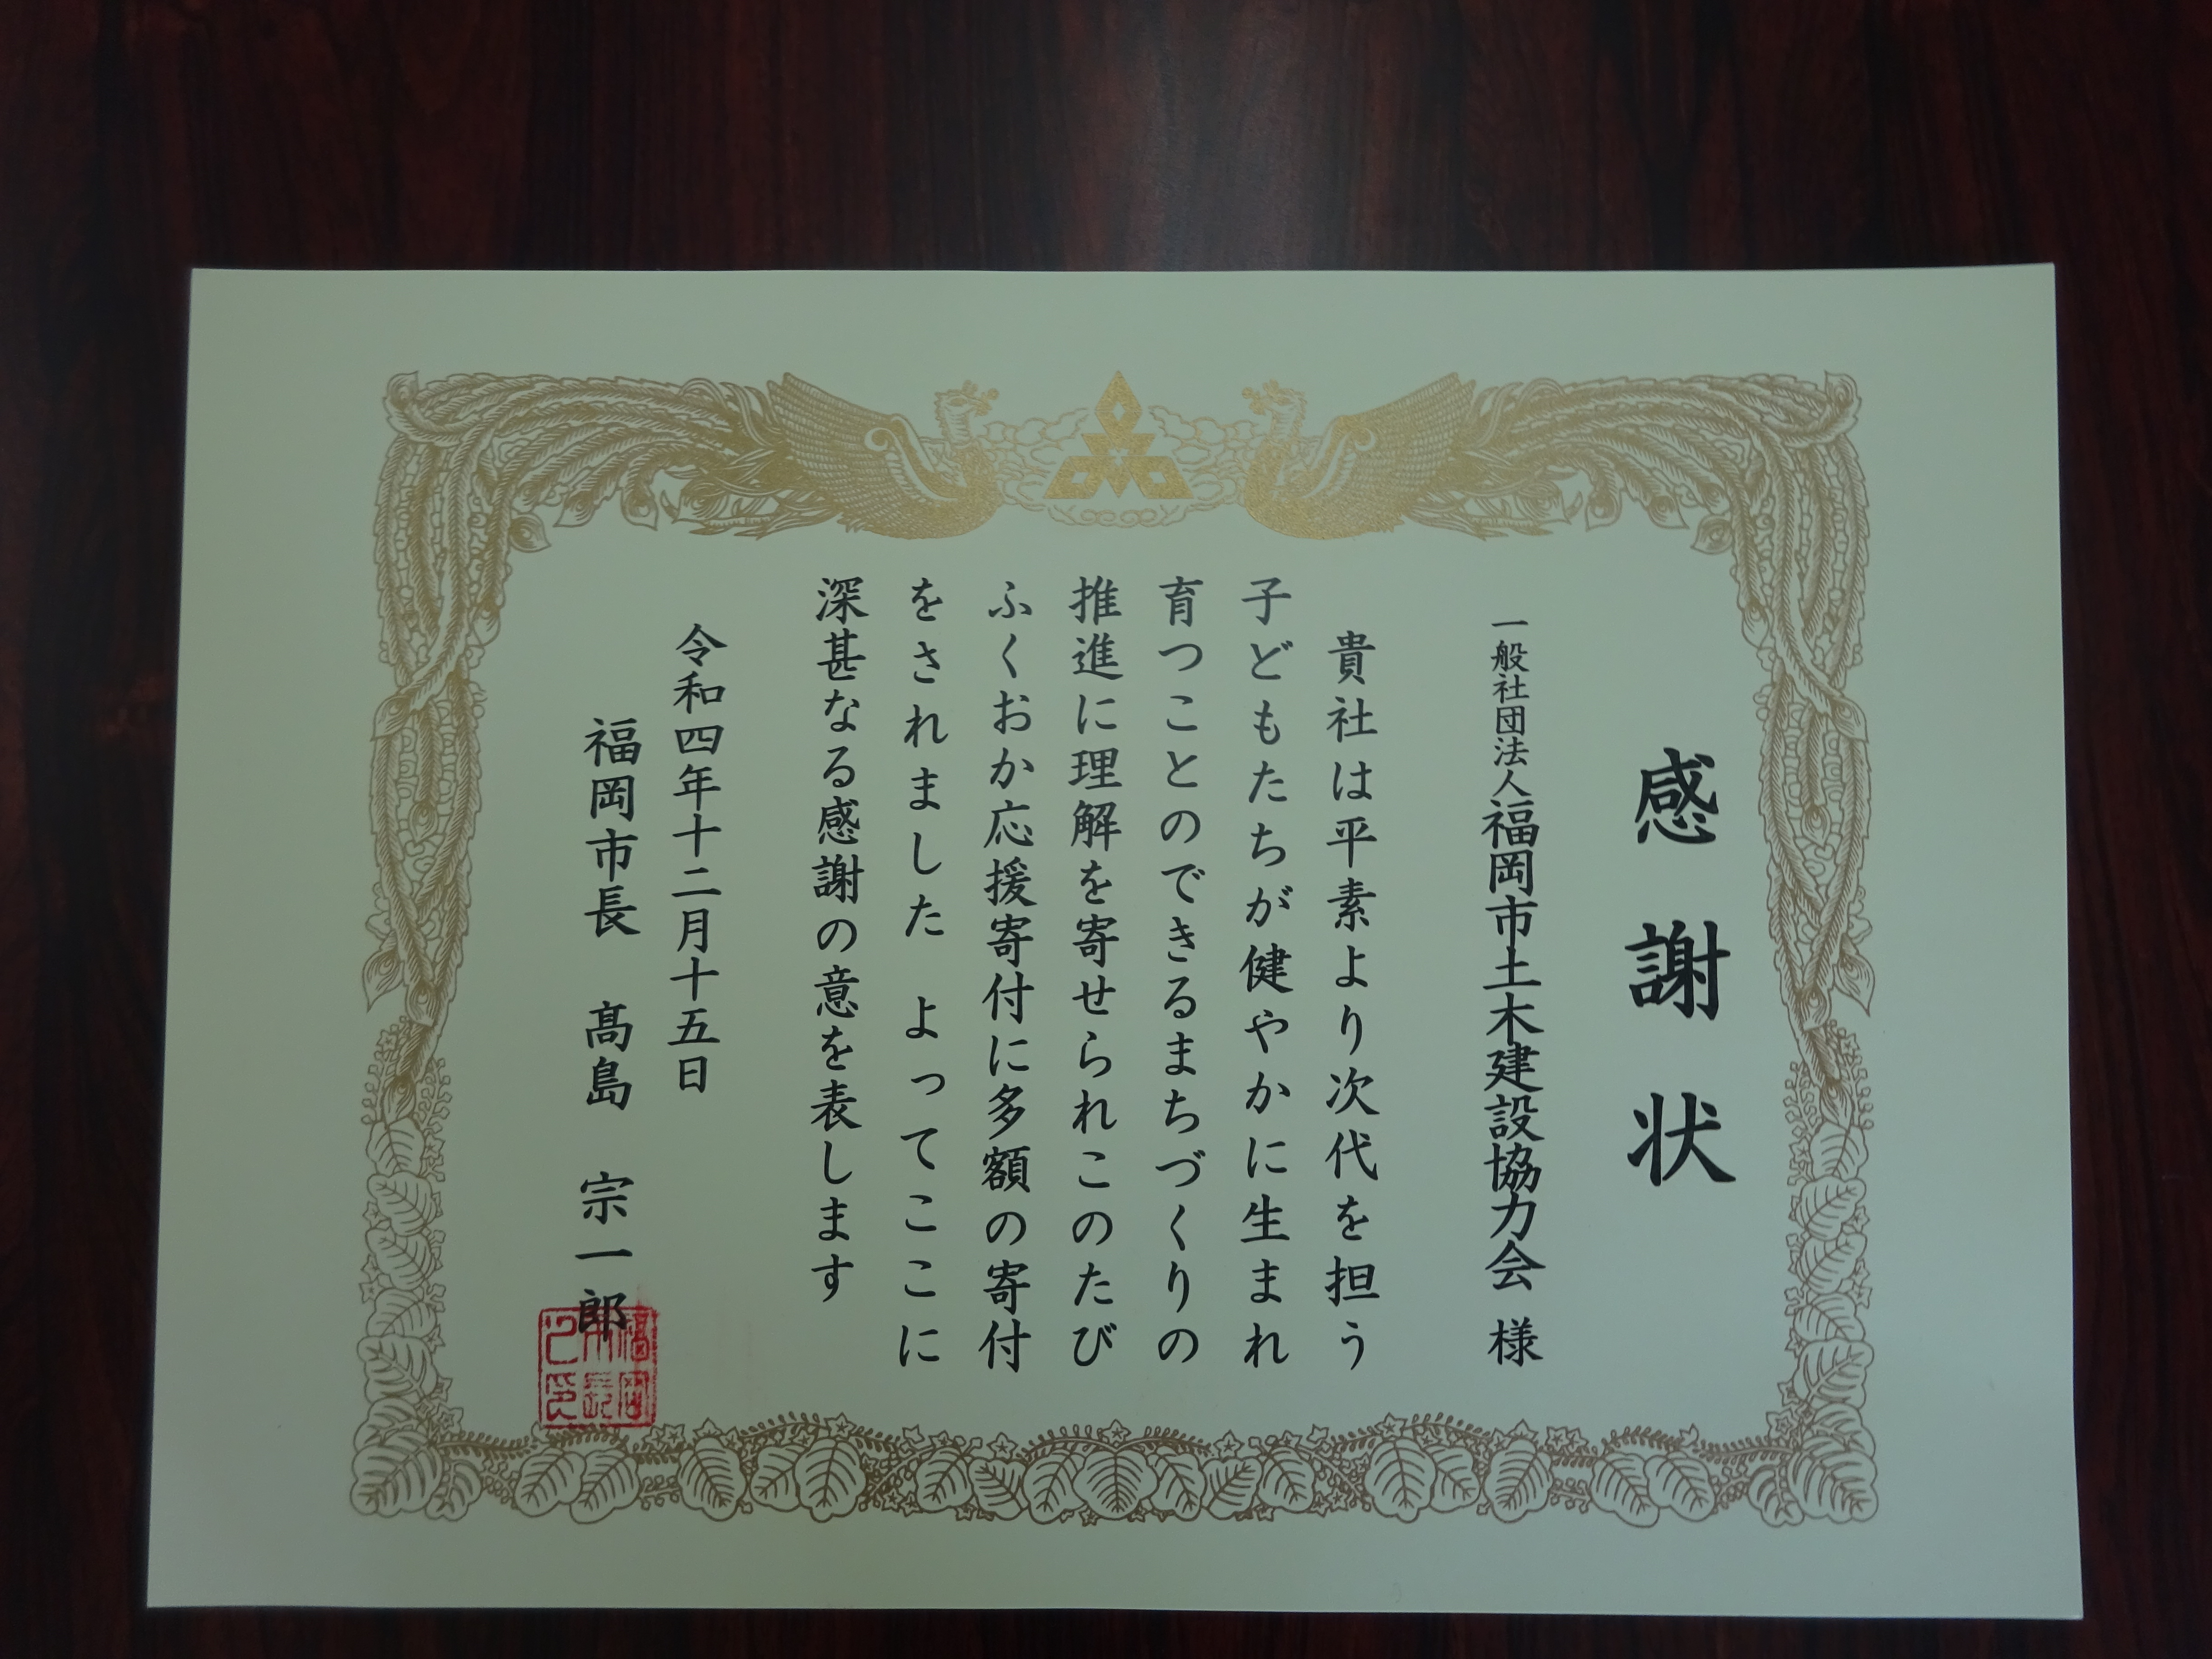 感謝状
一般社団法人福岡市土木建設協力会 様
貴社は平素より次代を担う
子どもたちが健やかに生まれ
育つことのできるまちづくりの
推進に理解を寄せられこのたび
ふくおか応援寄付に多額の寄付
をされました よってここに
深甚なる感謝の意を表します
令和四年十二月十五日
福岡市長 髙島 宗一郎
福岡市長之印